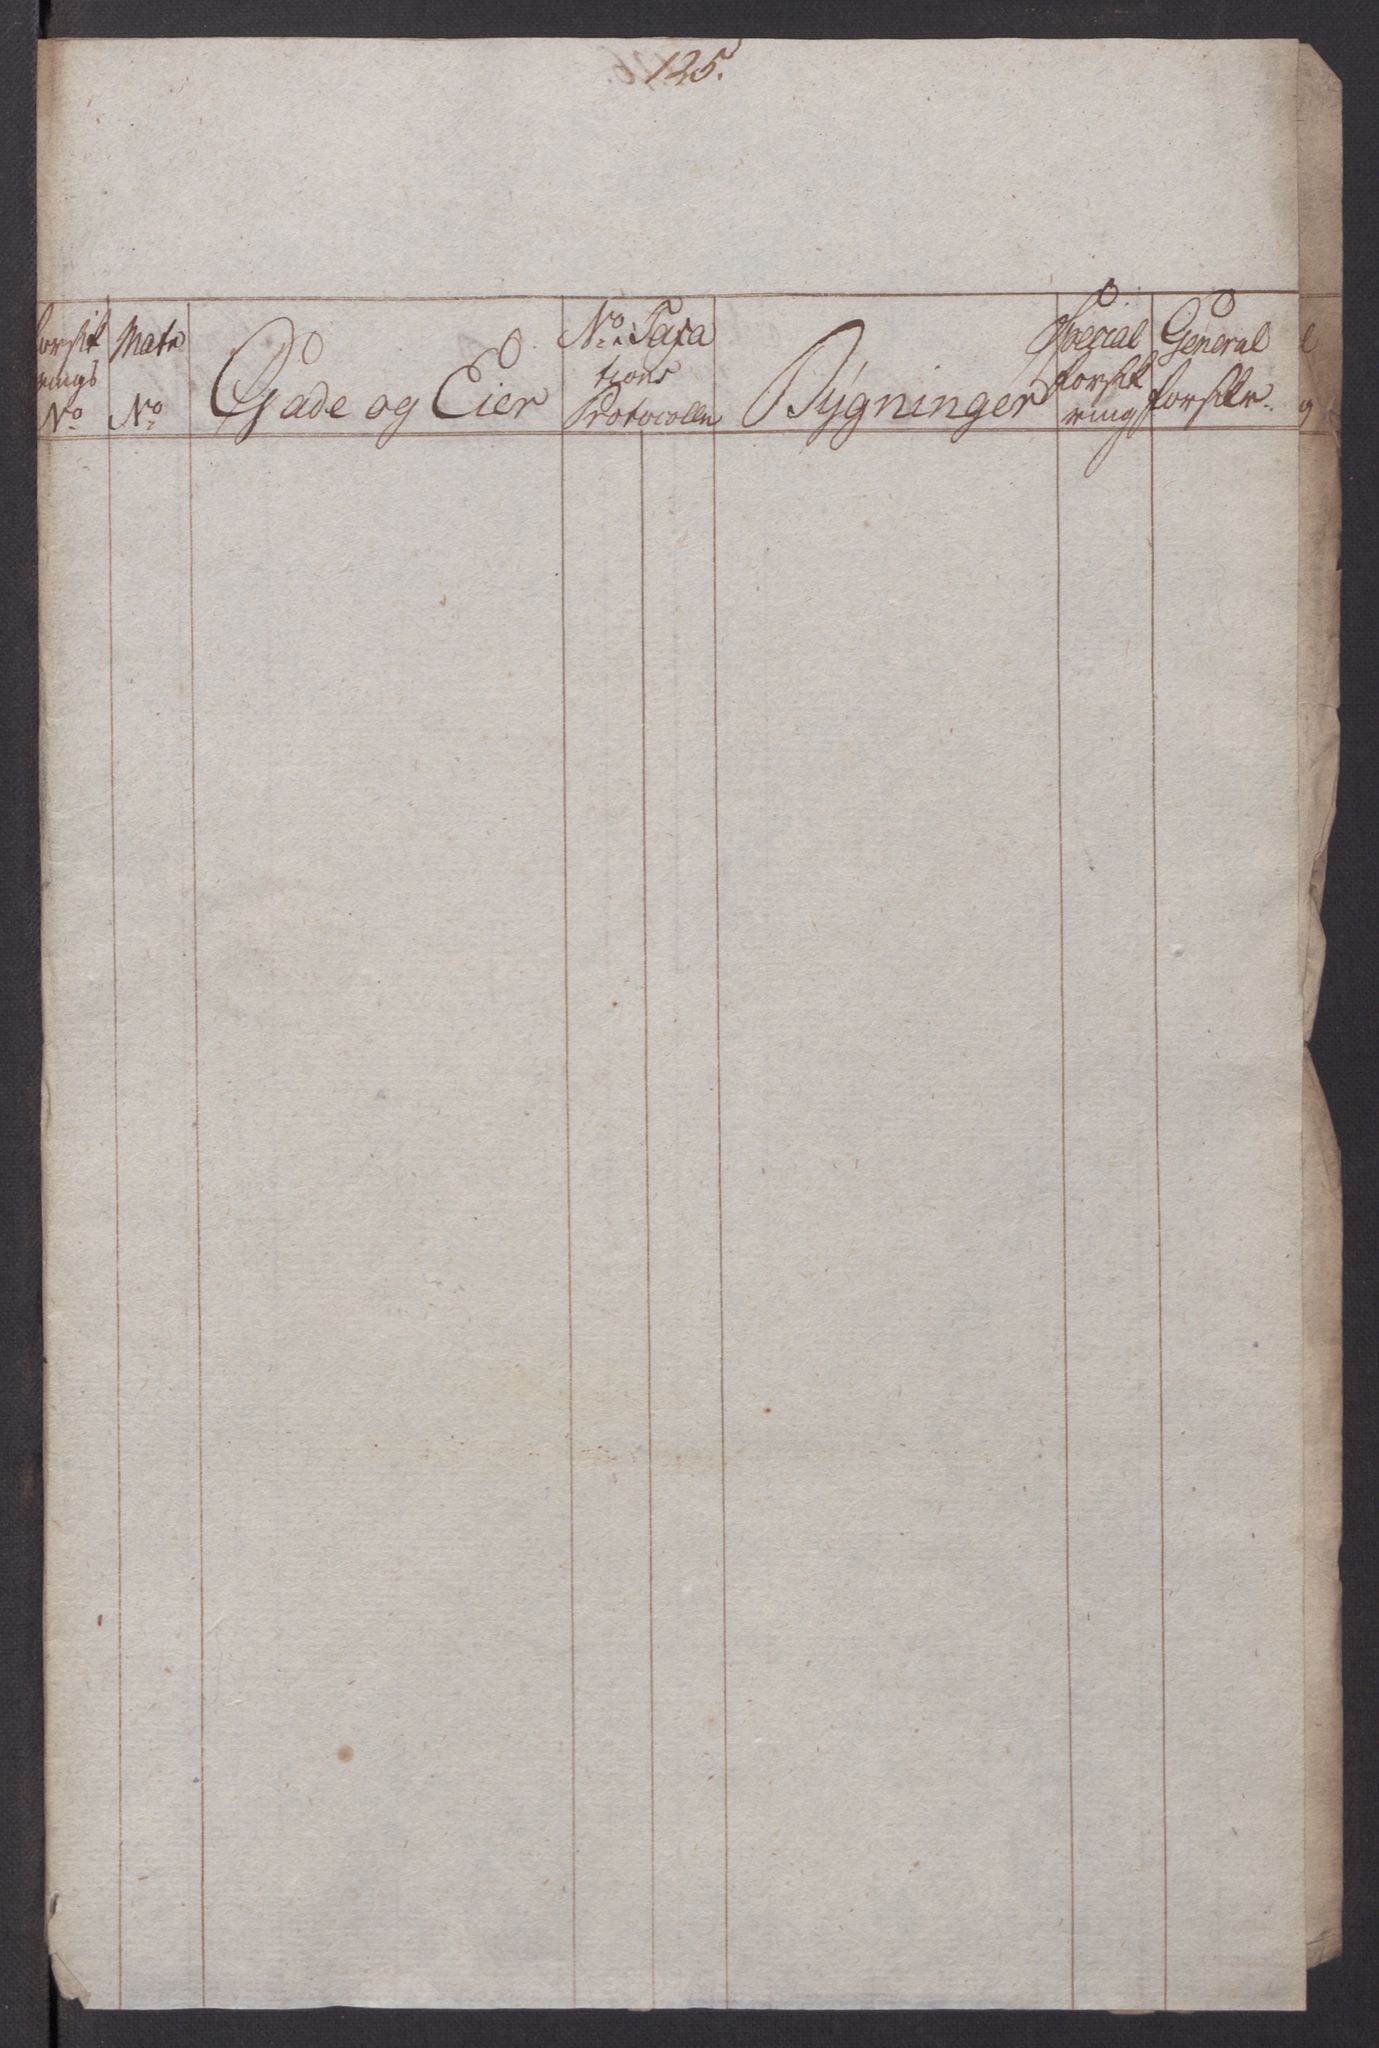 125.
forsik
rings
No
Matr
No
Gade og Eier
No Taxa
tions
Protocollen
Bygninger
Special
forsik
ring
General
forsikr.